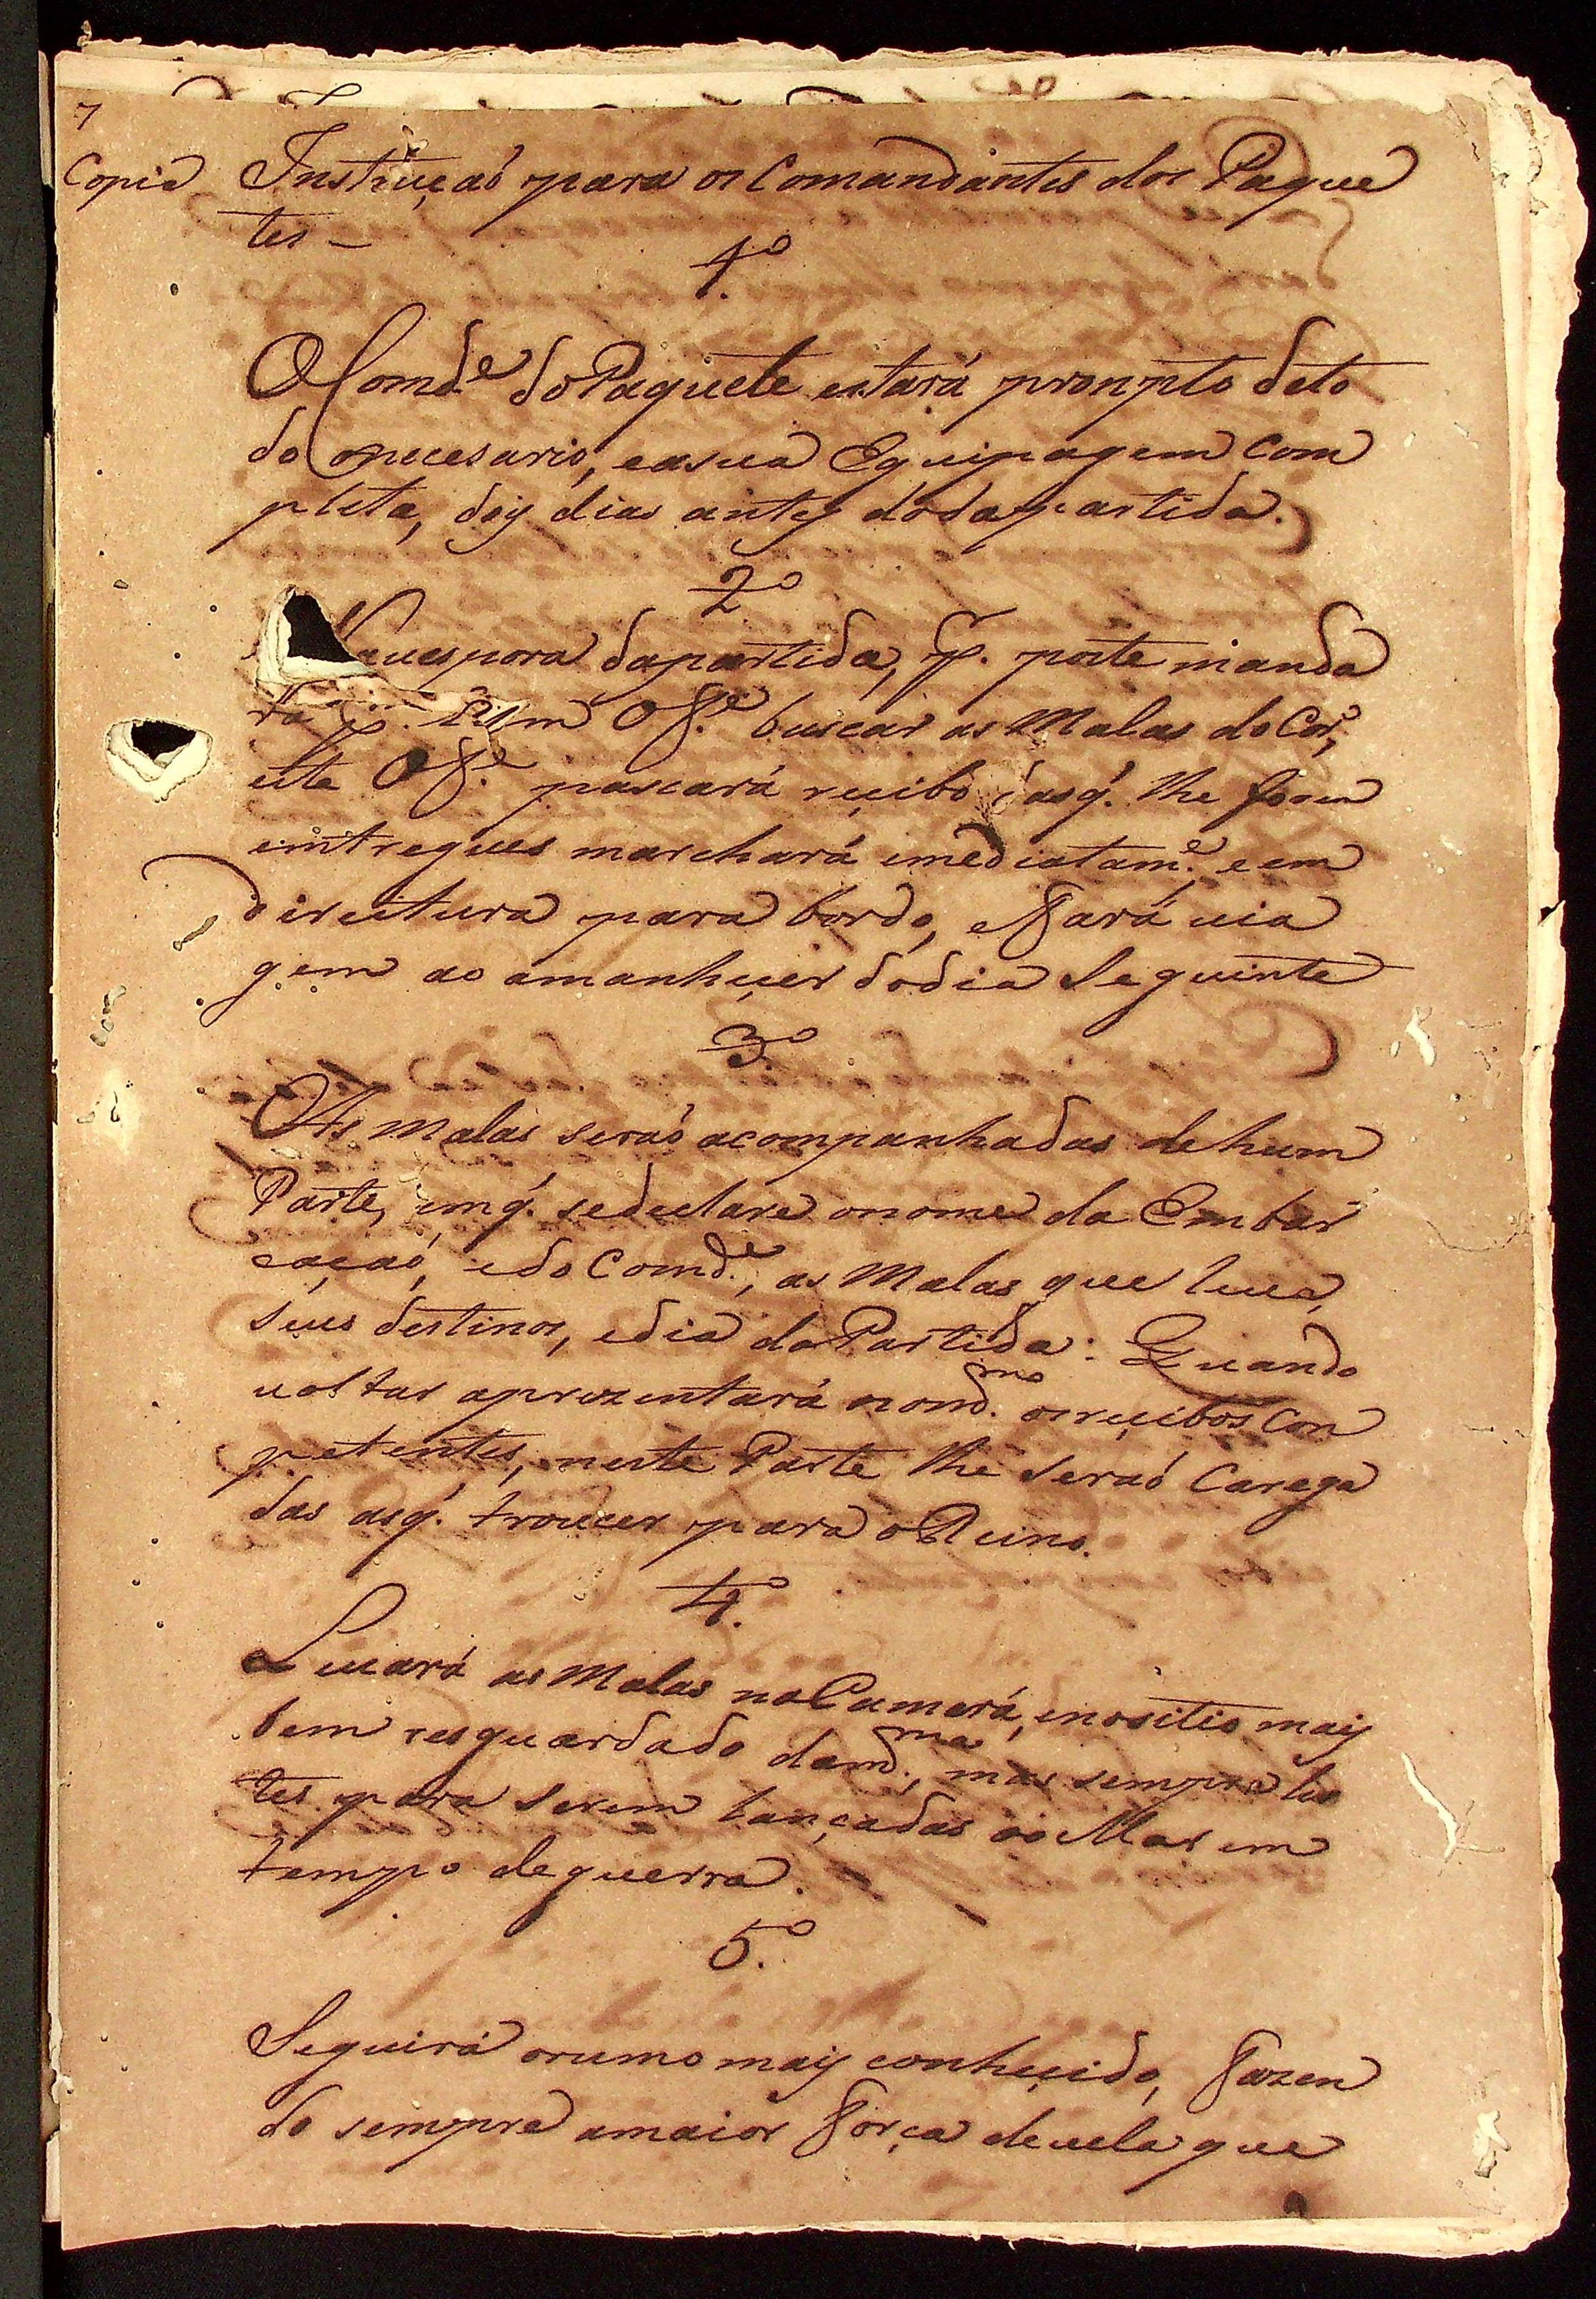 7
Copia Instruçaó para os Comandantes dos Paque
tes –
1.º
O Comd.e do Paquete estará prompto deto
do onecesario, easua Equipagem Com
pleta, dois dias antes do da partida.
2º
vespora dapartida, p. parte manda
rá p. hum Of.e buscar as Malas do Cor.o,
este Of.e passará recibo ás q. lhe forem
emtregues marchará imediatam.e, e em
direitura para bordo, e fará via
gem ao amanhecer do dia Seguinte
3.º
As Malas seraó acompanhadas de hum
Parte, em q. sedeclare onome da Embar
caçaó, edo Comd.e, as Malas que leva,
seus destinos, edia da Partida: Quando
voltar aprezentará nomd.mo os recibos con
petentes, neste Parte lhe seraó Carega
das as q. trouxer para o Reino.
4.º
Levará as Malas na Camará, enositio mais
bem resguardado damd.ma, mas sempre les
tes para serem lançadas ao Mar em
tempo deguerra.
5.º
Seguirá orumo mais conhecido, fazen
do sempre amaior força devela que